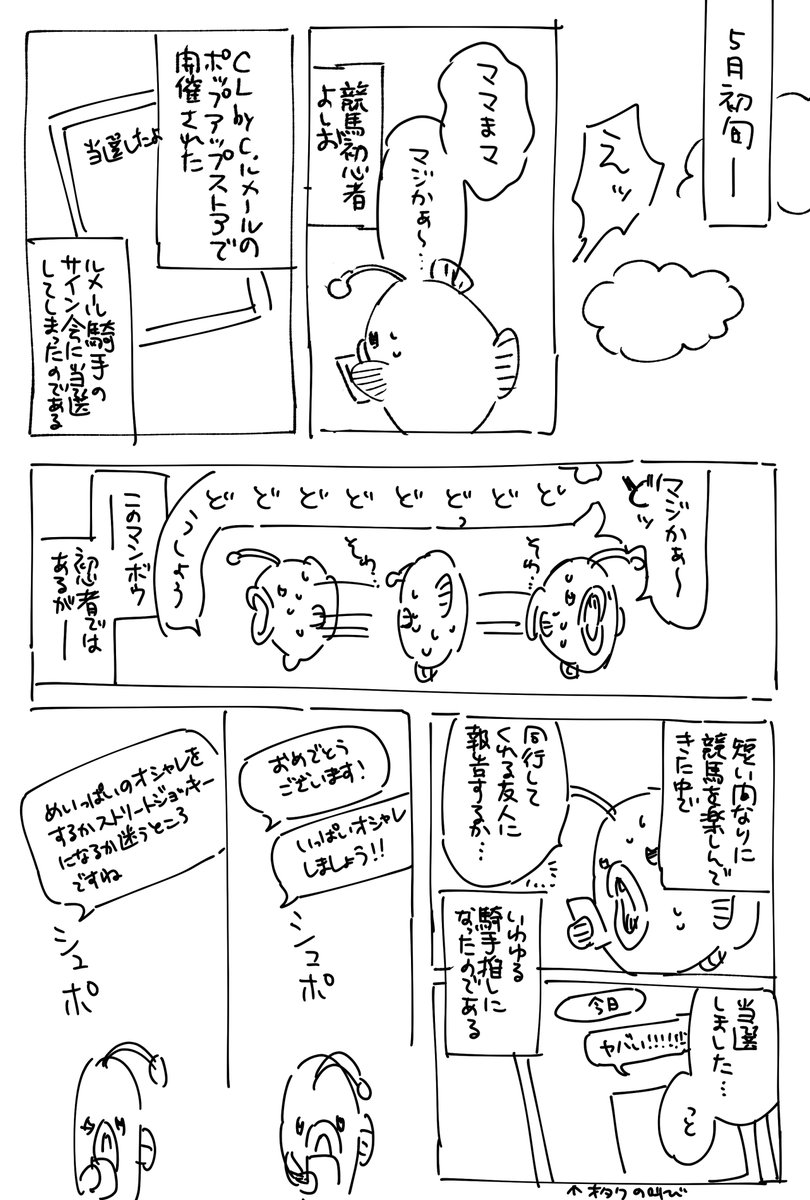 5月初旬ー
えッ
ママまマ
マジかぁ〜…
競馬初心者
よしお
CL by C.ルメールの
ポップアップストアで
開催された
当選したよ
ルメール騎手の
サイン会に当選
してしまったのである
マジかぁ〜
どッ
どどどどどどどど
うしよう
そわ…
そわ…
このマンボウ
ー
初心者では
あるがー
短い間なりに
競馬を楽しんで
きた中で
同行して
くれる友人に
報告するか…
いわゆる
騎手推しに
なったのである
当選
しました…
っと
今日
ヤバい!!!!!!
↑オタクの叫び
おめでとう
ございます!
いっぱいオシャレ
しましょう!!
シュポ
めいっぱいのオシャレを
するかストリートジョッキー
になるか迷うところ
ですね
シュポ